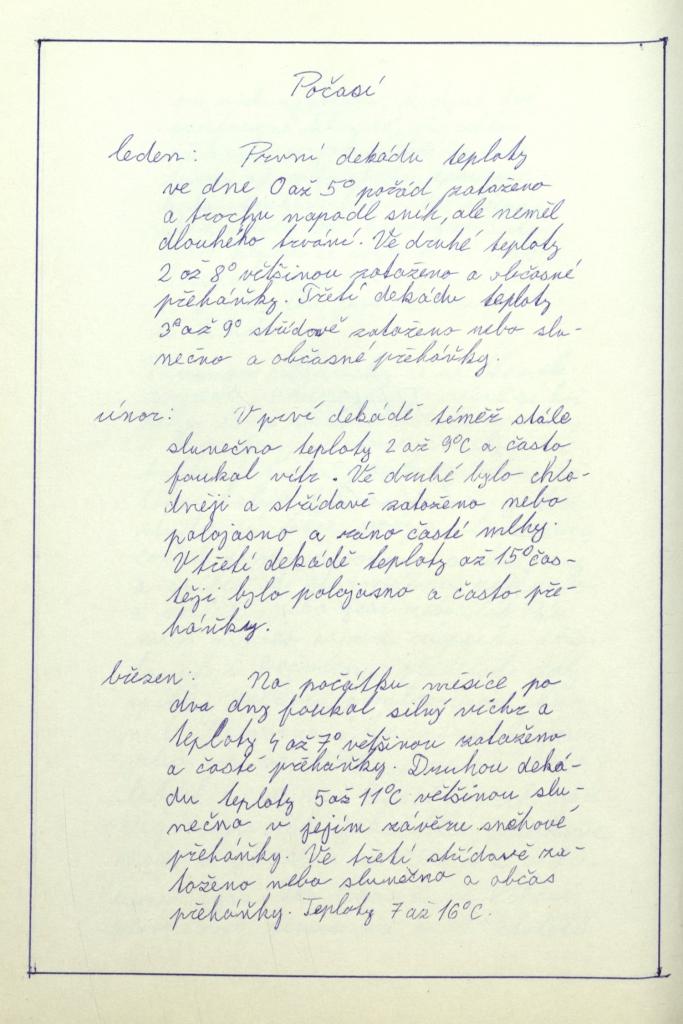 Počasí
leden: První dekádu teploty
ve dne 0 až 5° pořád zataženo
a trochu napadl sníh, ale neměl
dlouhého trvání. Ve druhé teploty
2 až 8° většinou zataženo a občasné
přeháňky. Třetí dekádu teploty
3° až 9° střídavě zataženo nebo slu-
nečno a občasné přeháňky.
únor: V prvé dekádě téměř stále
slunečno teploty 2 až 9°C a často
foukal vítr. Ve druhé bylo chlo-
dněji a střídavě zataženo nebo
polojasno a ráno časté mlhy.
V třetí dekádě teploty až 15° čas-
těji bylo polojasno a často pře-
háňky.
březen: Na počátku měsíce po
dva dny foukal silný vichr a
teploty 4 až 7° většinou zataženo
a časté přeháňky. Druhou deká-
du teploty 5 až 11°C většinou slu-
nečno v jejím závěru sněhové
přeháňky. Ve třetí střídavě za-
taženo nebo slunečno a občas
přeháňky. Teploty 7 až 16°C.